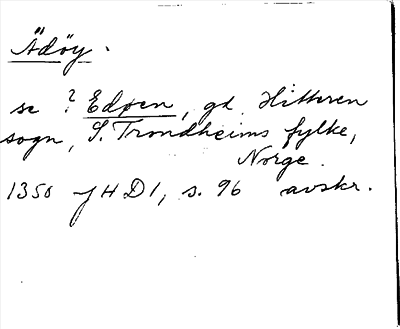 Ädöy.
se ? Edøen, gd Hitteren
sogn, S. Trondheims fylke,
Norge.
1350 JHD1, s. 96 avskr.